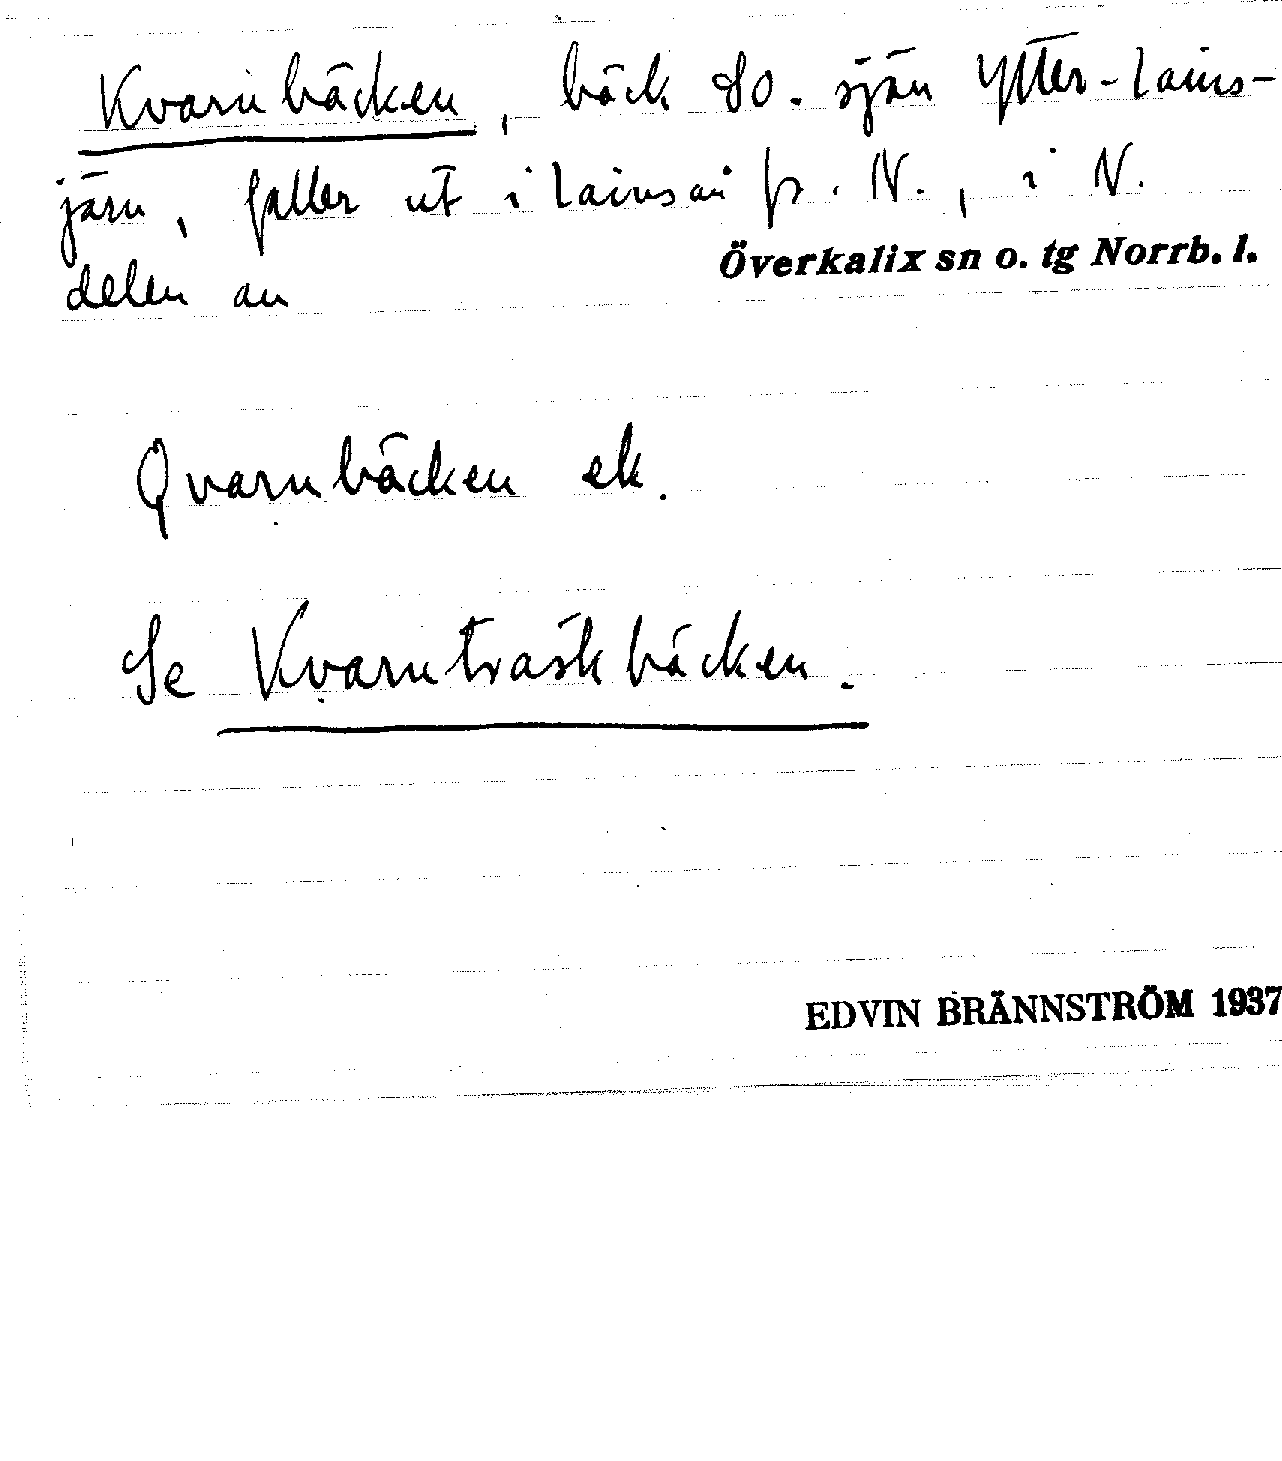 Kvarnbäcken, bäck SO. sjön Ytter-Lains-
järv, faller ut i Lainsån fr. N., i N.
delen av
Överkalix sn o. tg Norrb. l.
Qvarnbäcken ek.
Se Kvarnträskbäcken.
EDVIN BRÄNNSTRÖM 1937